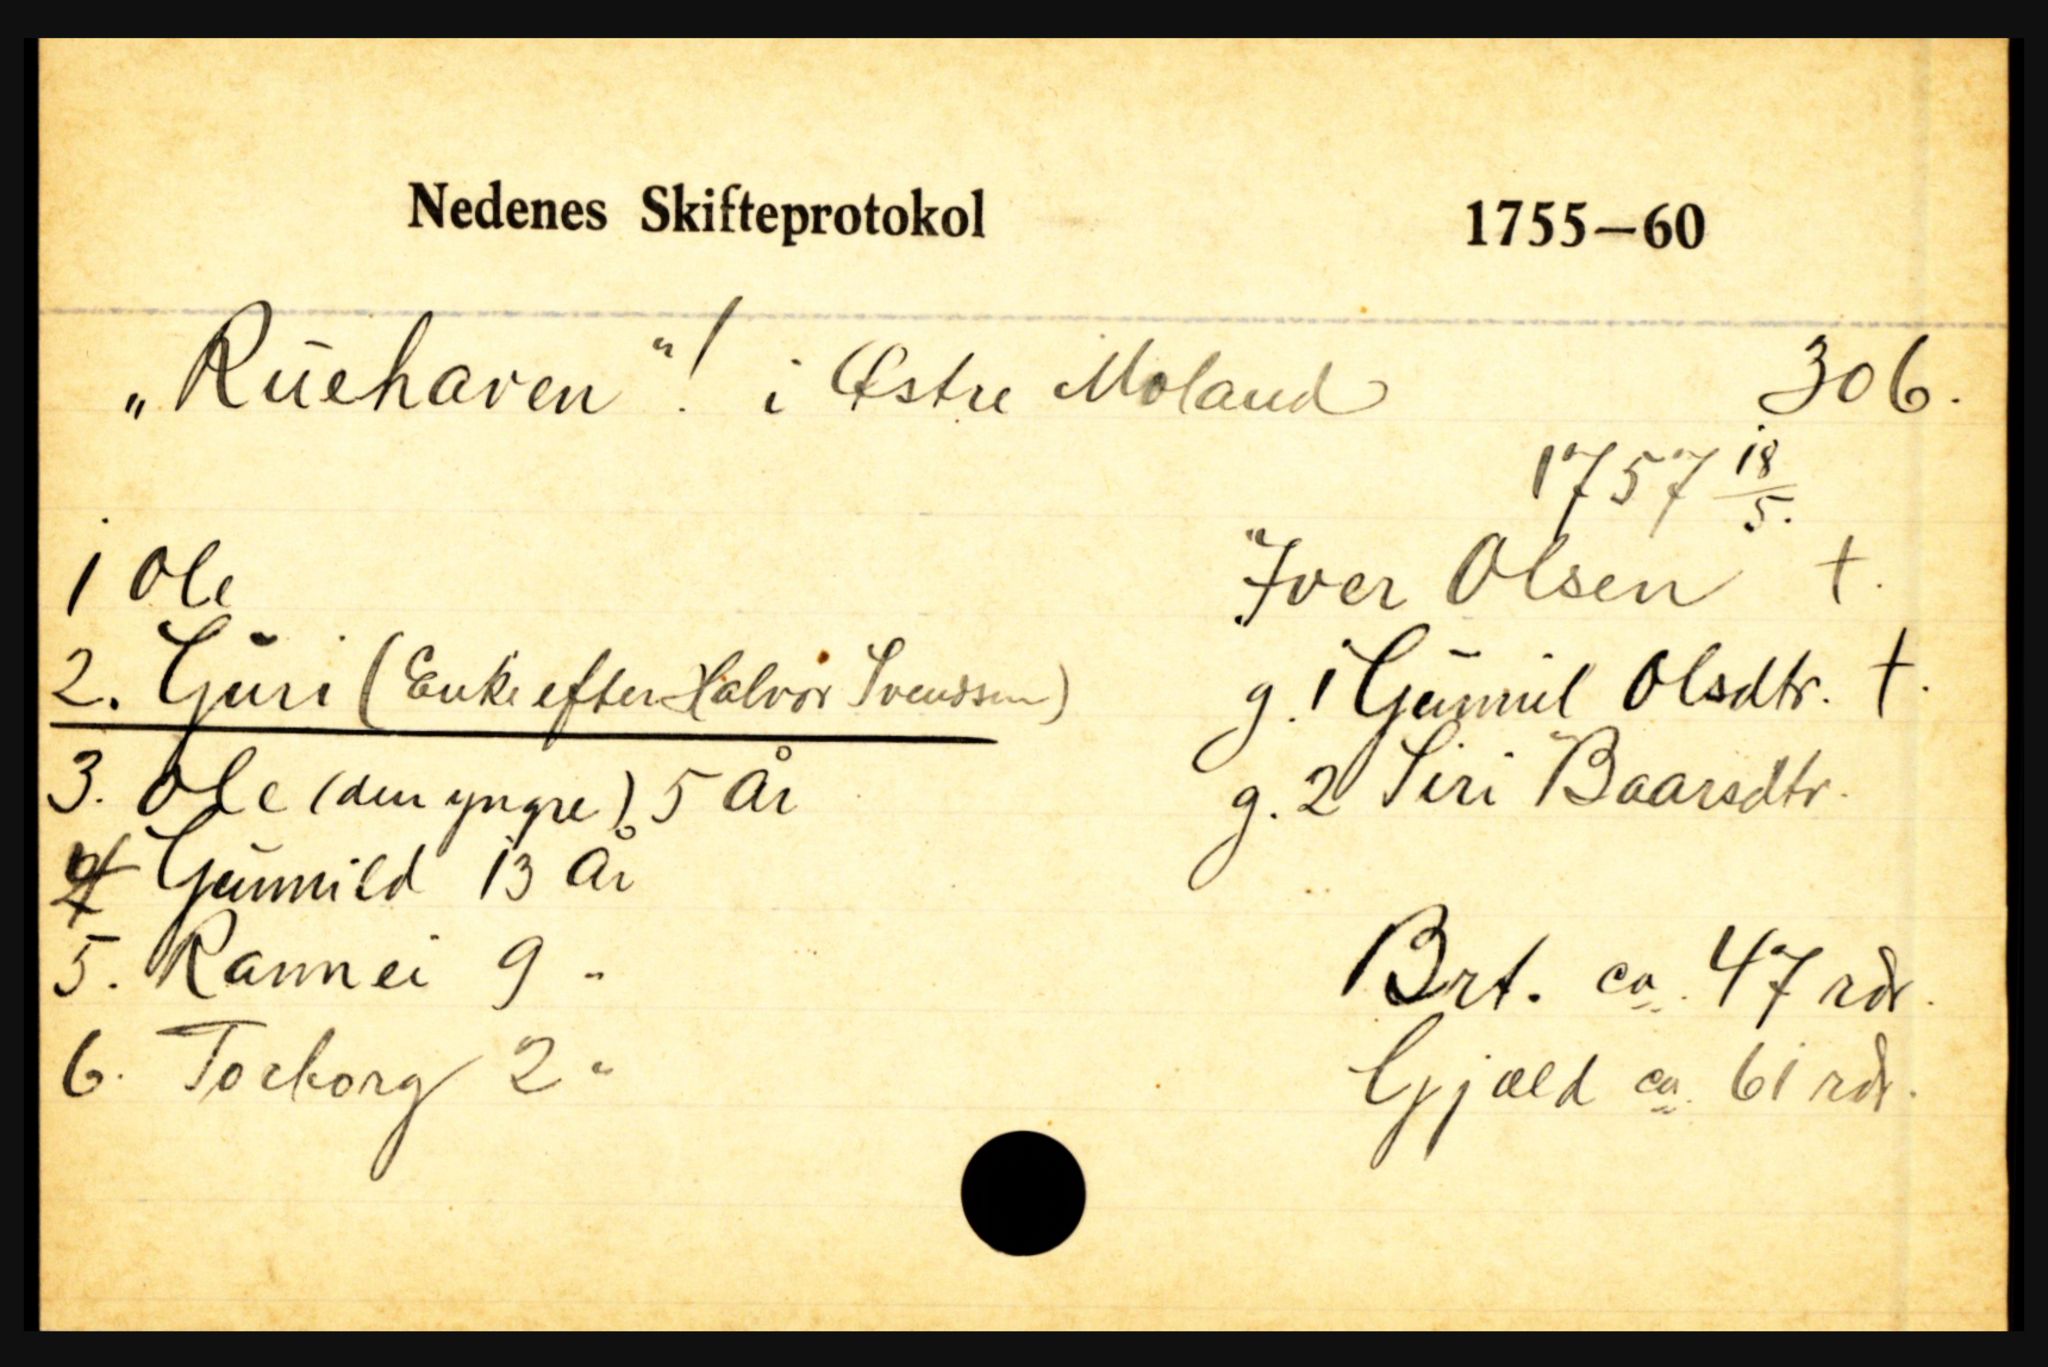 Nedenes Skifteprotokol 1755—60
„Ruehaven“! i Østre Moland 306.
1757 18/5.
Iver Olsen †.
g. 1 Gunnil Olsdtr. †.
g. 2 Siri Baarsdtr.
1 Ole
2. Guri (Enke efter Halvor Svendssen)
3. Ole (den yngre) 5 år
4 Gunnild 13 år
5. Rannei 9 "
6. Torborg 2 "
Brt. ca. 47 rdr.
Gjæld ca. 61 rdr.